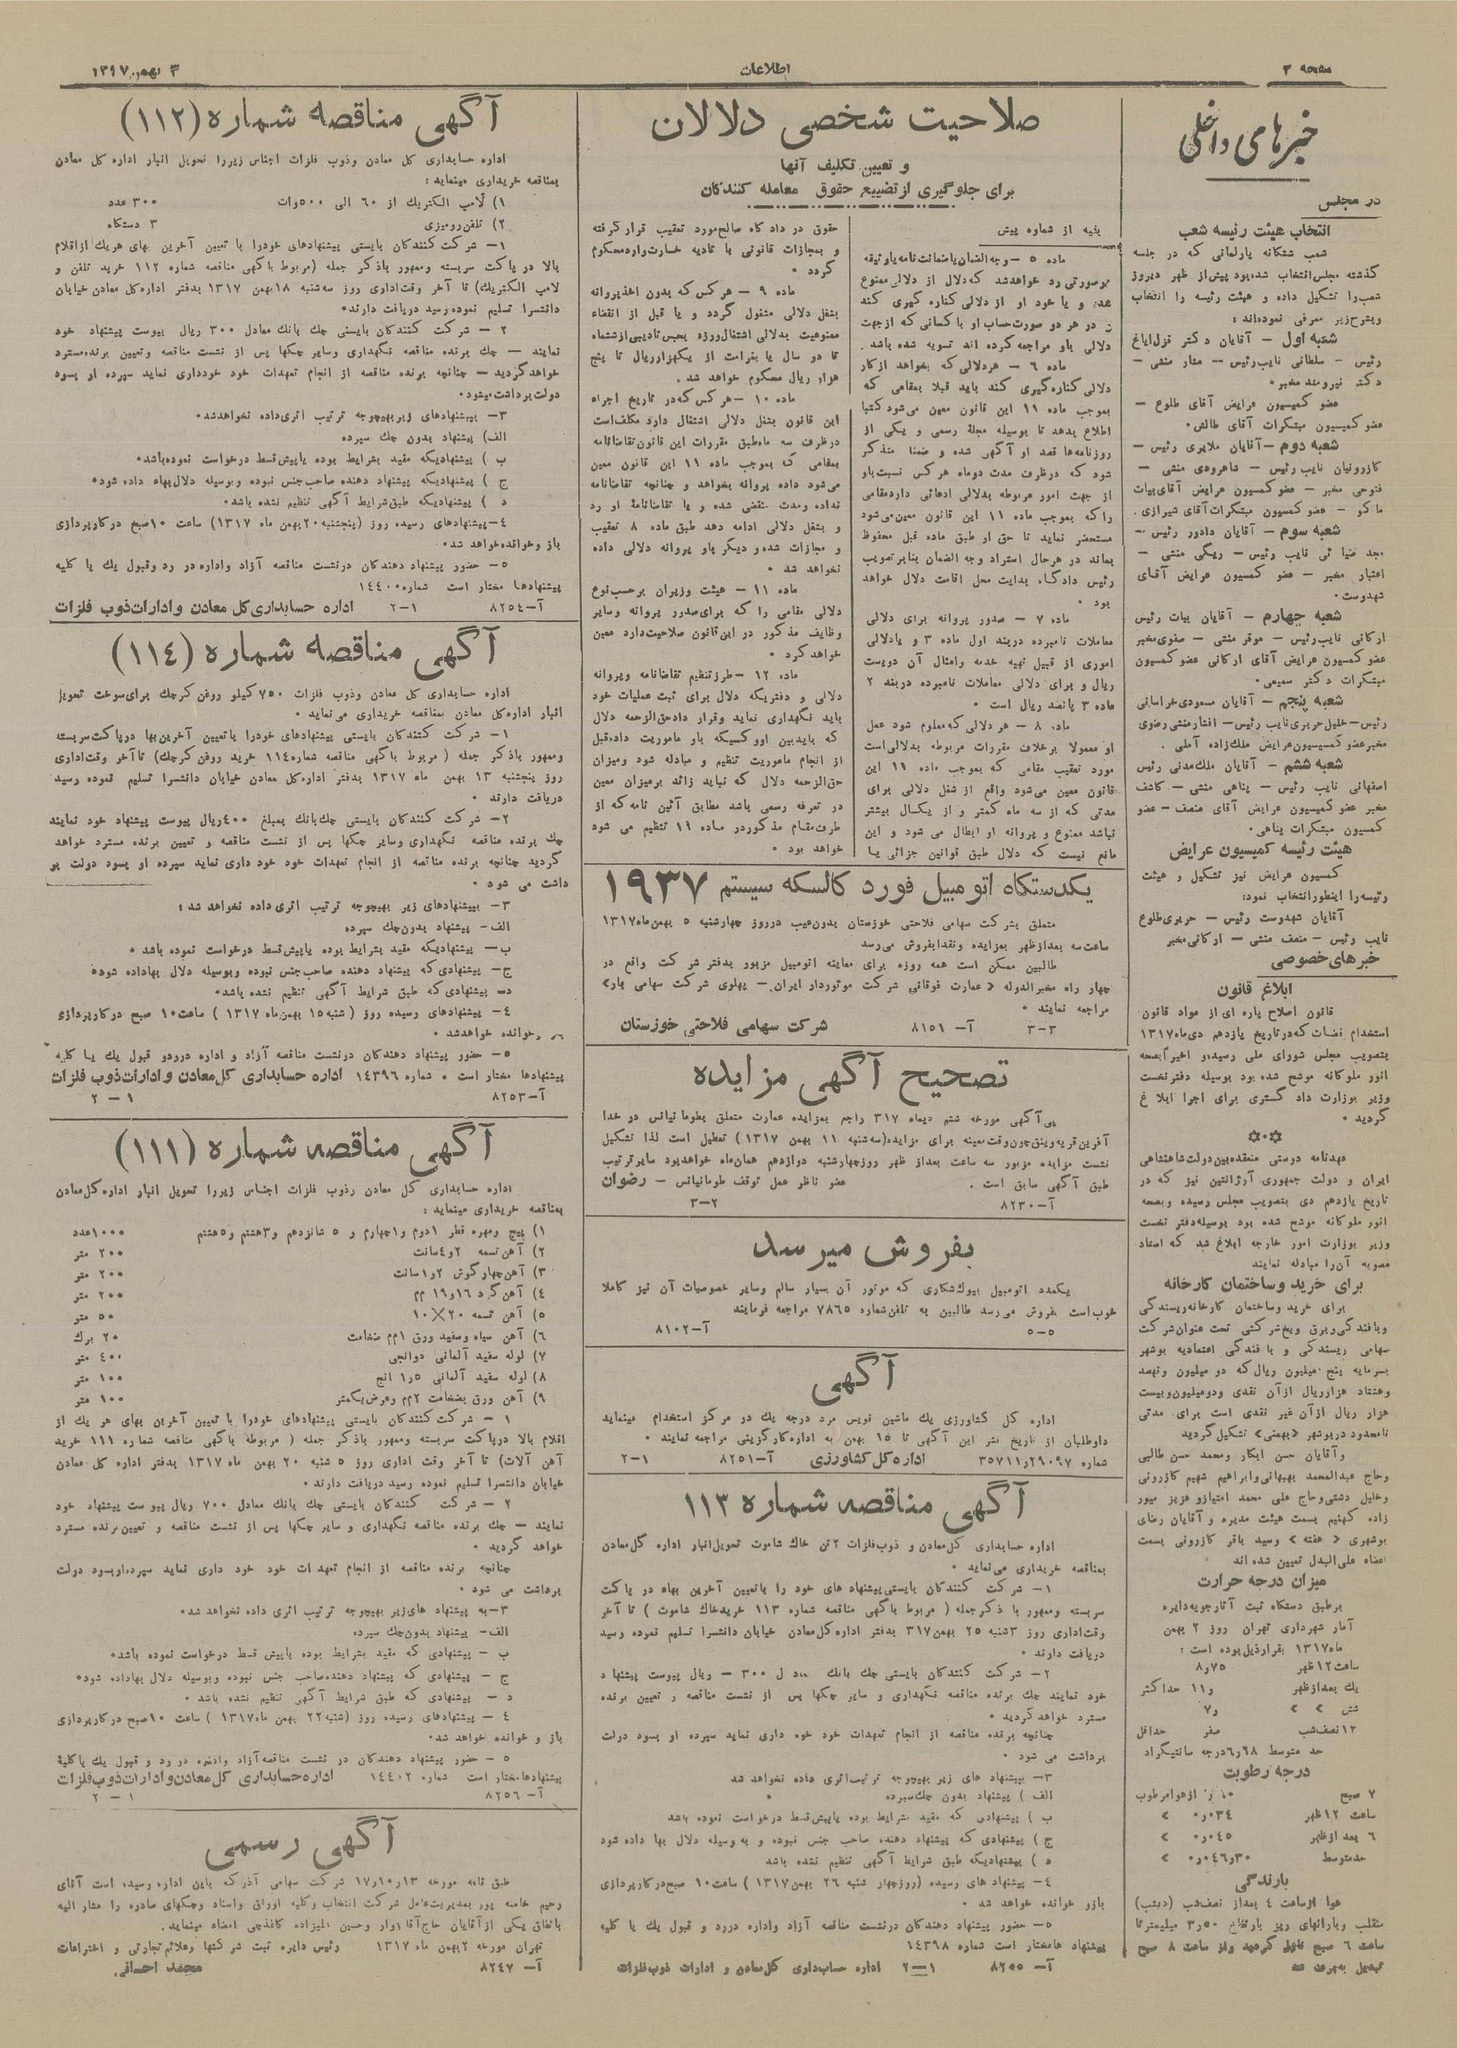 صفحه ۲
اطلاعات
۳ بهمن ۱۳۱۷
خبرهای داخلی
در مجلس
انتخاب هیئت رئیسه شعب
شعب ششگانه پارلمانی که در جلسه
گذشته مجلس انتخاب شده بود پیش از ظهر دیروز
شعب را تشکیل داده و هیئت رئیسه را انتخاب
و بشرح زیر معرفی نموده‌اند:
شعبه اول – آقایان دکتر قزل ایاغ
رئیس – سلطانی نایب رئیس – مشار منشی –
دکتر نیرومند مخبر.
عضو کمیسیون عرایض آقای طلوع –
عضو کمیسیون مبتکرات آقای طالش.
شعبه دوم – آقایان ملایری رئیس –
کازرونیان نایب رئیس – شاهرودی منشی –
فتوحی مخبر – عضو کمیسیون عرایض آقای بیات
ماکو – عضو کمیسیون مبتکرات آقای شیرازی.
شعبه سوم – آقایان دادور رئیس –
مجد ضیائی نایب رئیس – ریگی منشی –
اعتبار مخبر – عضو کمیسیون عرایض آقای
شهدوست.
شعبه چهارم – آقایان بیات رئیس
ارکانی نایب رئیس – موقر منشی – صفوی مخبر
عضو کمیسیون عرایض آقای ارکانی عضو کمسیون
مبتکرات دکتر سمیعی.
شعبه پنجم – آقایان مسعودی خراسانی
رئیس – خلیل حریری نایب رئیس – افشار منشی رضوی
مخبر عضو کمیسیون عرایض ملک زاده آملی.
شعبه ششم – آقایان ملک مدنی رئیس
اصفهانی نایب رئیس – پناهی منشی – کاشف
مخبر عضو کمیسیون عرایض آقای منصف – عضو
کمسیون مبتکرات پناهی.
هیئت رئیسه کمیسیون عرایض
کمسیون عرایض نیز تشکیل و هیئت
رئیسه را اینطور انتخاب نمود:
آقایان شهدوست رئیس – حریری طلوع
نایب رئیس – منصف منشی – ارکانی مخبر
خبرهای خصوصی
ابلاغ قانون
قانون اصلاح پاره ای از مواد قانون
استخدام قضات که در تاریخ یازدهم دی ماه ۱۳۱۷
بتصویب مجلس شورای ملی رسیده و اخیراً بصحه
انور ملوکانه موشح شده بود بوسیله دفتر نخست
وزیر بوزارت دادگستری برای اجرا ابلاغ
گردید.
عهدنامه دوستی منعقده بین دولت شاهنشاهی
ایران و دولت جمهوری آرژانتین نیز که در
تاریخ یازدهم دی بتصویب مجلس رسیده و بصحه
انور ملوکانه موشح شده بود بوسیله دفتر نخست
وزیر بوزارت امور خارجه ابلاغ شد که اسناد
مصوبه آن را مبادله نمایند
برای خرید و ساختمان کارخانه
برای خرید و ساختمان کارخانه ریسندگی
و بافندگی و برق و یخ شرکتی تحت عنوان شرکت
سهامی ریسندگی و بافندگی اعتمادیه بوشهر
بسرمایه پنج میلیون ریال که دو میلیون و نهصد
و هشتاد هزار ریال از آن نقدی و دو میلیون و بیست
هزار ریال از آن غیر نقدی است برای مدتی
نامحدود در بوشهر (بهمنی) تشکیل گردید
و آقایان حسن ابکار و محمد حسن طالبی
وحاج عبدالمحمد بهبهانی و ابراهیم شهیم کازرونی
وخلیل دشتی وحاج علی محمد امتیاز و عزیز میور
زاده کهنیم بسمت هیئت مدیره و آقایان رضای
بوشهری « هفته » وسید باقر کازرونی بسمت
اعضاء علی‌البدل تعیین شده اند
میزان درجه حرارت
برطبق دستگاه ثبت آثار جویه دایره
آمار شهرداری تهران روز ۲ بهمن
ماه ۱۳۱۷ بقرار ذیل بوده است:
ساعت ۱۲ ظهر ۸٫۷۵
یک بعدازظهر ۱۱ حداکثر
شش » » ۷
۱۲ نصف شب صفر حداقل
حد متوسط ۶٫۶۸ درجه سانتیگراد
درجه رطوبت
۷ صبح از هوا مرطوب
ساعت ۱۲ ظهر ۰٫۳۴ »
۶ بعد از ظهر ۰٫۴۵ »
حد متوسط »
بارندگی
هوا از ساعت ۴ بعداز نصف شب (دیشب)
منقلب و بارانهای ریز بارتفاع ۳٫۵۰ میلیمتر تا
ساعت ۶ صبح نازل گردید و از ساعت ۸ صبح
صلاحیت شخصی دلالان
و تعیین تکلیف آنها
برای جلوگیری از تضییع حقوق معامله کنندگان
بقیه از شماره پیش
ماده ۵ – وجه الضمان یا ضمانت نامه یا وثیقه
در صورتی رد خواهد شد که دلال از دلالی ممنوع
شده و یا خود او از دلالی کناره گیری کند
در هر دو صورت حساب او با کسانی که از جهت
دلالی باو مراجعه کرده اند تسویه شده باشد.
ماده ۶ – هر دلالی که بخواهد از کار
دلالی کناره گیری کند باید قبلا بمقامی که
بموجب ماده ۱۱ این قانون معین می‌شود کتبا
اطلاع بدهد تا بوسیله مجلهٔ رسمی و یکی از
روزنامه‌ها قصد او آگهی شده و ضمنا متذکر
شود که در ظرف مدت دو ماه هر کس نسبت باو
از جهت امور مربوطه بدلالی ادعائی دارد مقامی
را که بموجب ماده ۱۱ این قانون معین می‌شود
مستحضر نماید تا حق او طبق ماده قبل محفوظ
بماند در هر حال استرداد وجه الضمان بنا بر تصویب
رئیس دادگاه بدایت محل اقامت دلال خواهد
بود.
ماده ۷ – صدور پروانه برای دلالی
معاملات نامبرده در بند اول ماده ۳ و یا دلالی
اموری از قبیل تهیه خدمه و امثال آن دویست
ریال و برای دلالی معاملات نامبرده در بند ۲
ماده ۳ پانصد ریال است.
ماده ۸ – هر دلالی که معلوم شود عمل
او معمولا برخلاف مقررات مربوطه بدلالی است
مورد تعقیب مقامی که بموجب ماده ۱۱ این
قانون معین می‌شود واقع از شغل دلالی برای
مدتی که از سه ماه کمتر و از یکسال بیشتر
نباشد ممنوع و پروانه او ابطال می شود و این
مانع نیست که دلال طبق قوانین جزائی یا
حقوق در دادگاه صالح مورد تعقیب قرار گرفته
و بمجازات قانونی یا تادیه خسارت وارد محکوم
گردد.
ماده ۹ – هر کس که بدون اخذ پروانه
بشغل دلالی مشغول گردد و یا قبل از انقضاء
ممنوعیت بدلالی اشتغال ورزد بحبس تادیبی از شش ماه
تا دو سال یا بغرامت از یک هزار ریال تا پنج
هزار ریال محکوم خواهد شد.
ماده ۱۰ – هر کس که در تاریخ اجراء
این قانون بشغل دلالی اشتغال دارد مکلف است
در ظرف سه ماه طبق مقررات این قانون تقاضانامه
بمقامی که بموجب ماده ۱۱ این قانون معین
می‌شود داده پروانه بخواهد و چنانچه تقاضانامه
نداده و مدت منقضی شده و یا تقاضانامهٔ او رد
و بشغل دلالی ادامه دهد طبق ماده ۸ تعقیب
و مجازات شده و دیگر باو پروانه دلالی داده
نخواهد شد.
ماده ۱۱ – هیئت وزیران برحسب نوع
دلالی مقامی را که برای صدور پروانه وسایر
وظایف مذکور در این قانون صلاحیت دارد معین
خواهد کرد.
ماده ۱۲ – طرز تنظیم تقاضانامه و پروانه
دلالی و دفتریکه دلال برای ثبت عملیات خود
باید نگهداری نماید و قرارداد حق‌الزحمه دلال
که باید بین او و کسیکه باو ماموریت داده قبل
از انجام ماموریت تنظیم و مبادله شود و میزان
حق‌الزحمه دلال که نباید زائد بر میزان معین
در تعرفه رسمی باشد مطابق آئین نامه که از
طرف مقام مذکور در ماده ۱۱ تنظیم می شود
خواهد بود.
یکدستگاه اتومبیل فورد کالسکه سیستم ۱۹۳۷
متعلق بشرکت سهامی فلاحتی خوزستان بدون عیب در روز چهارشنبه ۵ بهمن ماه ۱۳۱۷
ساعت سه بعدازظهر بمزایده ونقدا بفروش می‌رسد
طالبین ممکن است همه روزه برای معاینه اتومبیل مزبور بدفتر شرکت واقع در
چهار راه مخبرالدوله « عمارت فوقانی شرکت موتوردار ایران – پهلوی شرکت سهامی پار»
مراجعه نمایند.
۳–۳ آ– ۸۱۵۱ شرکت سهامی فلاحتی خوزستان
تصحیح آگهی مزایده
پی آگهی مورخه ششم دیماه ۳۱۷ راجع بمزایده عمارت متعلق بطومانیانس در خدا
آفرین قریه ونق چون وقت معینه برای مزایده (سه‌شنبه ۱۱ بهمن ۱۳۱۷) تعطیل است لذا تشکیل
نشست مزایده مزبور سه ساعت بعداز ظهر روز چهارشنبه دوازدهم همان ماه خواهد بود سایر ترتیب
طبق آگهی سابق است. عضو ناظر عمل توقف طومانیانس – رضوان
آ–۸۲۳۰ ۲–۳
بفروش میرسد
یکعدد اتومبیل بیوک شکاری که موتور آن بسیار سالم وسایر خصوصیات آن نیز کاملا
خوب است بفروش می‌رسد طالبین به تلفن شماره ۷۸۶۵ مراجعه فرمایند
۵–۵ آ–۸۱۰۲
آگهی
اداره کل کشاورزی یک ماشین نویس مرد درجه یک در مرکز استخدام مینماید
داوطلبان از تاریخ نشر این آگهی تا ۱۵ بهمن به اداره کارگزینی مراجعه نمایند.
شماره ۲۹۰۹۷ر۳۵۷۱۱ اداره کل کشاورزی آ–۸۲۵۱ ۱–۲
آگهی مناقصه شماره ۱۱۳
اداره حسابداری کل معادن و ذوب فلزات ۲ تن خاک شاموت تحویل انبار اداره کل معادن
بمناقصه خریداری می‌نماید.
۱– شرکت کنندگان بایستی پیشنهادهای خود را با تعیین آخرین بهاء در پاکت
سربسته و ممهور با ذکر جمله (مربوط باگهی مناقصه شماره ۱۱۳ خرید خاک شاموت) تا آخر
وقت اداری روز ۳شنبه ۲۵ بهمن ۳۱۷ بدفتر اداره کل معادن خیابان دانشسرا تسلیم نموده رسید
دریافت دارند.
۲– شرکت کنندگان بایستی چک بانک معادل ۳۰۰ – ریال پیوست پیشنهاد
خود نمایند چک برنده مناقصه نگهداری و سایر چکها پس از نشست مناقصه و تعیین برنده
مسترد خواهد گردید.
چنانچه برنده مناقصه از انجام تعهدات خود خودداری نماید سپرده او بسود دولت
برداشت می شود.
۳– بپیشنهاد های زیر بهیچوجه ترتیب اثری داده نخواهد شد
الف) پیشنهاد بدون چک سپرده
ب) پیشنهادی که مقید بشرایط بوده یا پیش قسط درخواست نموده باشد
ج) پیشنهادی که پیشنهاد دهنده صاحب جنس نبوده و به وسیله دلال بها داده شود
د) پیشنهادیکه طبق شرایط آگهی تنظیم نشده باشد
۴– پیشنهاد های رسیده (روز چهار شنبه ۲۶ بهمن ۱۳۱۷) ساعت ۱۰ صبح در کارپردازی
باز و خوانده خواهد شد.
۵– حضور پیشنهاد دهندگان در نشست مناقصه آزاد و اداره در رد و قبول یک یا کلیه
پیشنهاد ها مختار است شماره ۱۴۳۹۸
آ– ۸۲۵۵ ۱–۲ اداره حسابداری کل معادن و ادارات ذوب فلزات
آگهی مناقصه شماره (۱۱۲)
اداره حسابداری کل معادن وذوب فلزات اجناس زیر را تحویل انبار اداره کل معادن
بمناقصه خریداری مینماید:
۱) لامپ الکتریک از ۶۰ الی ۵۰۰ وات ۳۰۰ عدد
۲) تلفن رومیزی ۳ دستگاه
۱– شرکت کنندگان بایستی پیشنهادهای خود را با تعیین آخرین بهای هر یک از اقلام
بالا در پاکت سربسته و ممهور با ذکر جمله (مربوط باگهی مناقصه شماره ۱۱۲ خرید تلفن و
لامپ الکتریک) تا آخر وقت اداری روز سه شنبه ۱۸ بهمن ۱۳۱۷ بدفتر اداره کل معادن خیابان
دانشسرا تسلیم نموده رسید دریافت دارند.
۲ – شرکت کنندگان بایستی چک بانک معادل ۳۰۰ ریال پیوست پیشنهاد خود
نمایند – چک برنده مناقصه نگهداری وسایر چکها پس از نشست مناقصه وتعیین برنده مسترد
خواهد گردید – چنانچه برنده مناقصه از انجام تعهدات خود خودداری نماید سپرده او بسود
دولت برداشت میشود.
۳– بپیشنهادهای زیر بهیچوجه ترتیب اثری داده نخواهد شد.
الف) پیشنهاد بدون چک سپرده
ب) پیشنهادیکه مقید بشرایط بوده یا پیش قسط درخواست نموده باشد.
ج) پیشنهادیکه پیشنهاد دهنده صاحب جنس نبوده وبوسیله دلال بهاء داده شود.
د) پیشنهادیکه طبق شرایط آگهی تنظیم نشده باشد.
۴–پیشنهادهای رسیده روز (پنجشنبه ۲۰ بهمن ماه ۱۳۱۷) ساعت ۱۰ صبح در کارپردازی
باز وخوانده خواهد شد.
۵– حضور پیشنهاد دهندگان در نشست مناقصه آزاد و اداره در رد و قبول یک یا کلیه
پیشنهادها مختار است شماره ۱۴۴۰۰
آ–۸۲۵۴ ۱–۲ اداره حسابداری کل معادن و ادارات ذوب فلزات
آگهی مناقصه شماره (۱۱۴)
اداره حسابداری کل معادن وذوب فلزات ۷۵۰ کیلو روغن کرچک برای سوخت تحویل
انبار اداره کل معادن بمناقصه خریداری می نماید.
۱– شرکت کنندگان بایستی پیشنهادهای خود را با تعیین آخرین بها در پاکت سربسته
وممهور با ذکر جمله (مربوط باگهی مناقصه شماره ۱۱۴ خرید روغن کرچک) تا آخر وقت اداری
روز پنجشنبه ۱۳ بهمن ماه ۱۳۱۷ بدفتر اداره کل معادن خیابان دانشسرا تسلیم نموده رسید
دریافت دارند.
۲– شرکت کنندگان بایستی چک بانک بمبلغ ۴۰۰ ریال پیوست پیشنهاد خود نمایند
چک برنده مناقصه نگهداری وسایر چکها پس از نشست مناقصه و تعیین برنده مسترد خواهد
گردید چنانچه برنده مناقصه از انجام تعهدات خود خود داری نماید سپرده او بسود دولت بر
داشت می شود.
۳– بپیشنهادهای زیر بهیچوجه ترتیب اثری داده نخواهد شد:
الف– پیشنهاد بدون چک سپرده
ب– پیشنهادیکه مقید بشرایط بوده یا پیش قسط درخواست نموده باشد.
ج– پیشنهادی که پیشنهاد دهنده صاحب جنس نبوده وبوسیله دلال بها داده شود.
د– پیشنهادی که طبق شرایط آگهی تنظیم نشده باشد.
۴– پیشنهادهای رسیده روز (شنبه ۱۵ بهمن ماه ۱۳۱۷) ساعت ۱۰ صبح در کارپردازی
باز و خوانده خواهد شد.
۵– حضور پیشنهاد دهندگان در نشست مناقصه آزاد و اداره در رد و قبول یک یا کلیه
پیشنهادها مختار است. شماره ۱۴۳۹۶ اداره حسابداری کل معادن و ادارات ذوب فلزات
آ–۸۲۵۳ ۱–۲
آگهی مناقصه شماره (۱۱۱)
اداره حسابداری کل معادن وذوب فلزات اجناس زیر را تحویل انبار اداره کل معادن
بمناقصه خریداری مینماید:
۱) پیچ ومهره قطر ۱دوم و۱چهارم و ۵ شانزدهم و۳هشتم و۵هشتم ۱۰۰۰عدد
۲) آهن تسمه ۲و۴سانت ۲۰۰ متر
۳) آهن چهار گوش ۲و۱سانت ۲۰۰ متر
۴) آهن گرد ۱۶و۱۹ مم ۲۰۰ متر
۵) آهن تسمه ۲۰×۱۰ ۵۰ متر
۶) آهن سیاه وسفید ورق ۱مم ضخامت ۲۰ برگ
۷) لوله سفید آلمانی دواینچی ۴۰۰ متر
۸) لوله سفید آلمانی ۱٫۵ اینچ ۱۰۰ متر
۹) آهن ورق بضخامت ۲مم وعرض یکمتر ۱۰۰ متر
۱ – شرکت کنندگان بایستی پیشنهادهای خود را با تعیین آخرین بهای هر یک از
اقلام بالا در پاکت سربسته وممهور با ذکر جمله (مربوطه باگهی مناقصه شماره ۱۱۱ خرید
آهن آلات) تا آخر وقت اداری روز ۵ شنبه ۲۰ بهمن ماه ۱۳۱۷ بدفتر اداره کل معادن
خیابان دانشسرا تسلیم نموده رسید دریافت دارند.
۲ – شرکت کنندگان بایستی چک بانک معادل ۷۰۰ ریال پیوست پیشنهاد خود
نمایند – چک برنده مناقصه نگهداری و سایر چکها پس از نشست مناقصه و تعیین برنده مسترد
خواهد گردید.
چنانچه برنده مناقصه از انجام تعهدات خود خود داری نماید سپرده او بسود دولت
برداشت می شود.
۳–به پیشنهاد های زیر بهیچوجه ترتیب اثری داده نخواهد شد.
الف– پیشنهاد بدون چک سپرده
ب – پیشنهادی که مقید بشرایط بوده یا پیش قسط درخواست نموده باشد.
ج – پیشنهادی که پیشنهاد دهنده صاحب جنس نبوده وبوسیله دلال بها داده شود.
د – پیشنهادی که طبق شرایط آگهی تنظیم نشده باشد.
۴ – پیشنهادهای رسیده روز (شنبه ۲۲ بهمن ماه ۱۳۱۷) ساعت ۱۰ صبح در کارپردازی
باز و خوانده خواهد شد.
۵ – حضور پیشنهاد دهندگان در نشست مناقصه آزاد واداره در رد و قبول یک یا کلیهٔ
پیشنهادها مختار است شماره ۱۴۴۰۲ اداره حسابداری کل معادن و ادارات ذوب فلزات
آ– ۸۲۵۶ ۱–۲
آگهی رسمی
طبق نامه مورخه ۱۳ر۱۰ر۱۷ شرکت سهامی آذر که باین اداره رسیده است آقای
رحیم خامنه پور بمدیریت عامل شرکت انتخاب وکلیه اوراق واسناد وچکهای صادره را مشار الیه
باتفاق یکی از آقایان حاج آقا وحسین علیزاده کاغذچی امضاء مینماید.
تهران مورخه ۲ بهمن ماه ۱۳۱۷ رئیس دایره ثبت شرکتها وعلائم تجارتی و اختراعات
آ– ۸۲۴۷ محمد احسانی